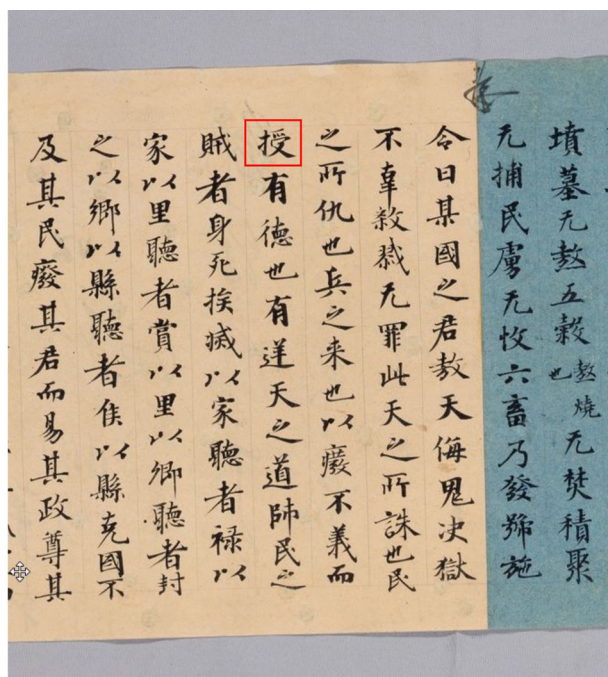 墳墓无熬五穀熬燒也无焚積聚
无捕民虜无收六畜乃發號施
令曰某國之君敖天侮鬼決獄
不辜敎戮无罪此天之所誅也民
之所仇也兵之来也以癈不義而
授有德也有逆天之道帥民之
賊者身死族滅以家聽者禄以
家以里聽者賞以里以鄉聽者封
之以鄉以縣聽者侯以縣克國不
及其民癈其君而易其政尊其